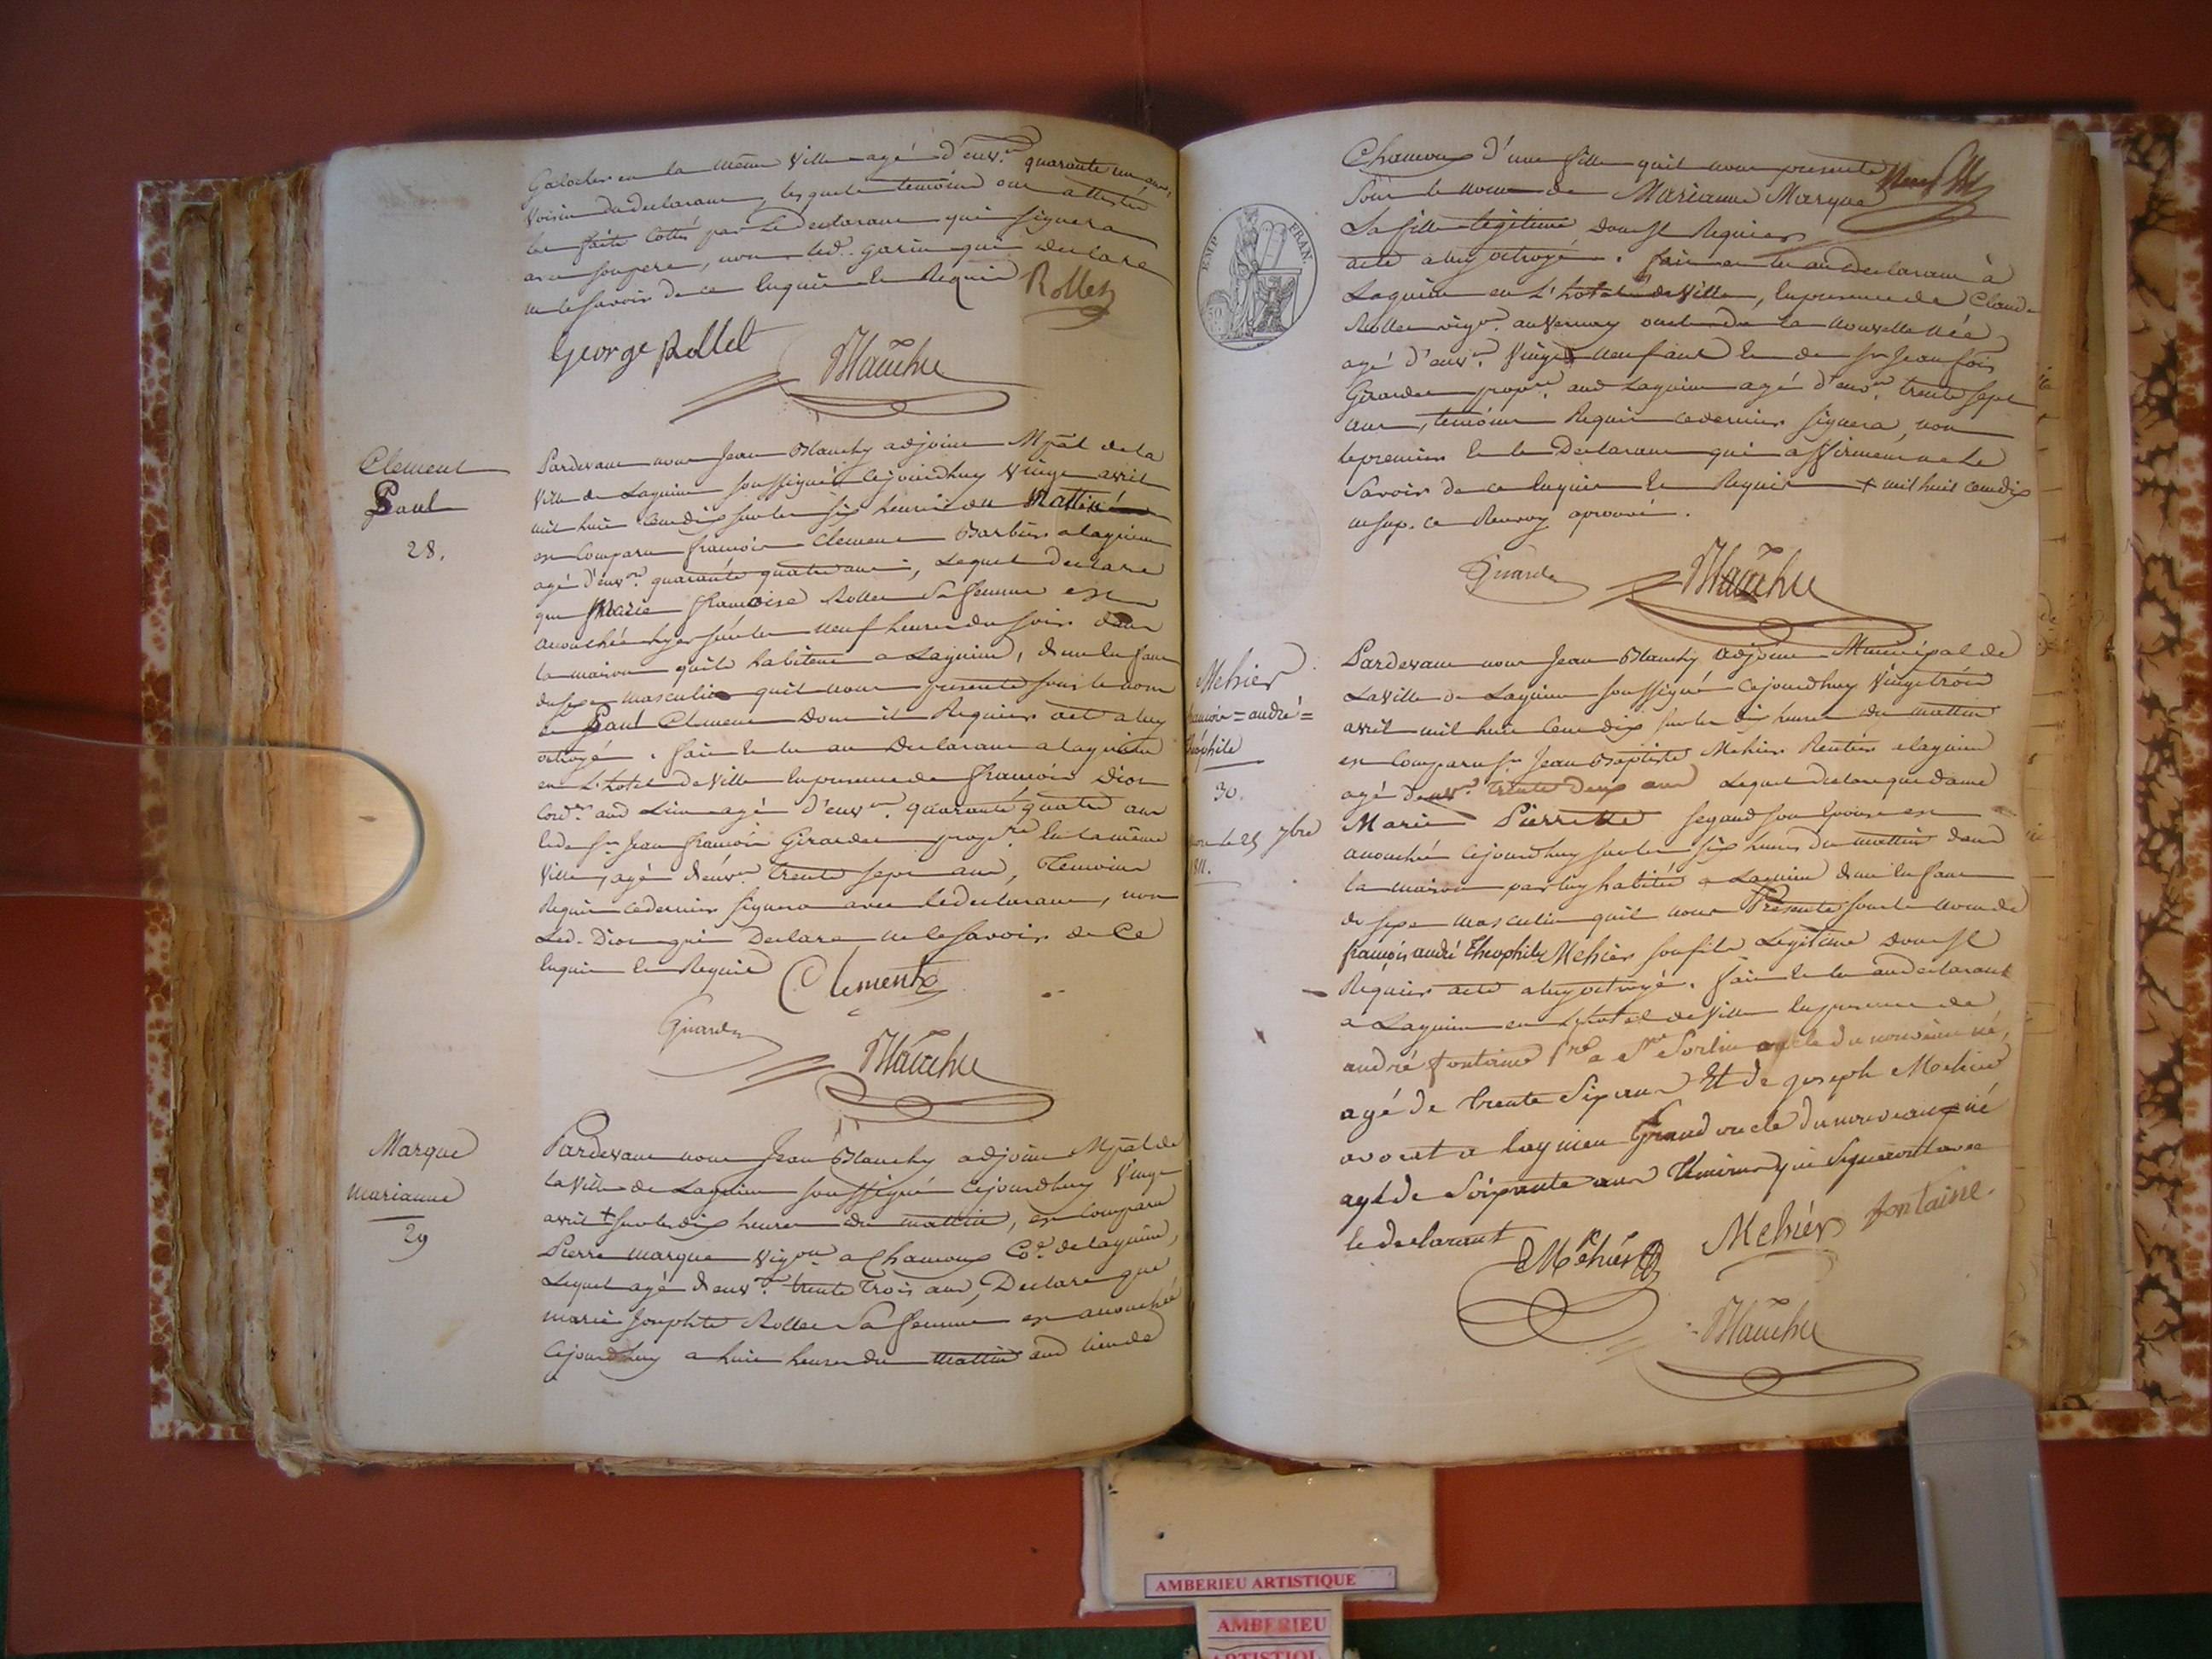 Galocher en la même Ville agé d'env.on quarante un ans,
Voisin du declarant, lesquels temoins ont attesté
les faits cottés par Le declarant qui signera
avec son pere, non led. garin qui declare
ne le savoir de ce Enquis et Requis Rollet
George Rollet Blanchy
Clement
Paul
28.
Pardevant nous Jean Blanchy adjoint Mpal de la
Ville de Lagnieu soussigné Cejourdhuy Vingt avril
mil huit Cent dix sur les six heures du Mattin
est Comparu francois Clement Barbier a lagnieu
agé d'env.on quarante quatre ans, Lequel declare
que Marie francoise Rollet Sa femme est
accouchée hyer sur les neuf heures du soir dans
la maison qu'ils habitent a Lagnieu, d'un Enfant
du sexe masculin qu'il nous presente sous le nom
de Paul Clement dont il Requier acte a luy
octroyé. fait et lu au Declarant a lagnieu
en L'hotel de Ville En presence de francois Dion
Cord.er aud Lieu agé d'env.on quarante quatre ans
et de Sr Jean francois Girardet prop.re En la même
Ville, agé d'env.on trente sept ans, Temoins
Requis ce dernier signera avec le declarant, non
Led. Dion qui Declare ne le savoir de Ce
Enquis et Requis Clement
Girardet
Blanchy
Marque
marianne
29
Pardevant nous Jean Blanchy adjoint Mpal de
la Ville de Lagnieu soussigné Cejourdhuy Vingt
avril + sur les dix heures du mattin, est Comparu
Pierre marque Vigon a Chamoux Co.e de lagnieu,
Lequel agé d'env.on trente trois ans, Declare que
marie Josephte Rollet Sa femme est accouchée
Cejourdhuy a huit heures du mattin aud lieu de
Chamoux d'une fille qu'il nous presente
Sous le nom de Marianne Marque
Sa fille legitime dont Il Requier
acte a luy octroyé. fait et lu au Declarant à
Lagnieu en L'hotel de Ville, En presence de Claude
Rollet vigr. au Vernay oncle de la nouvelle née,
agé d'env.on Vingt neuf ans et de Sr Jean fois
Girardet prop.re aud Lagnieu agé d'env.on trente sept
ans, temoins Requis ce dernier signera, non
le premier et le Declarant qui affirment ne le
Savoir de ce Enquis et Requis + mil huit cent dix
en sus. ce Renvoy aprouvé.
Girardet Blanchy
EMP. FRAN.
Mehier
francois = andré =
théophile
30.
mort le 25 7bre
1811.
Pardevant nous Jean Blanchy adjoint Municipal de
La Ville de Lagnieu soussigné Cejourdhuy Vingt trois
avril mil huit Cent dix sur les dix heures du mattin
est Comparu Sr Jean Baptiste Mehier Rentier a lagnieu
agé d'env.on trente deux ans Lequel declare que dame
Marie Pierrette Segaud son Epouse est
accouchée Cejourdhuy sur les six heures du mattin dans
la maison par luy habitée a Lagnieu d'un Enfant
du sexe masculin qu'il nous Presente sous le nom de
francois andré Theophile Mehier son fils Legitime dont Il
Requier acte a luy octroyé. fait et lu au declarant
a Lagnieu en L'hotel de Ville En presence de
andré fontaine Pre a St Sorlin oncle du nouveau né,
agé de trente Six ans Et de joseph Mehier
avocat a lagnieu Grand oncle du nouveau né
agé de Soixante ans Temoins qui signeront avec
le declarant Mehier Mehier fontaine
Blanchy
AMBERIEU ARTISTIQUE
AMBERIEU
ARTISTIQU